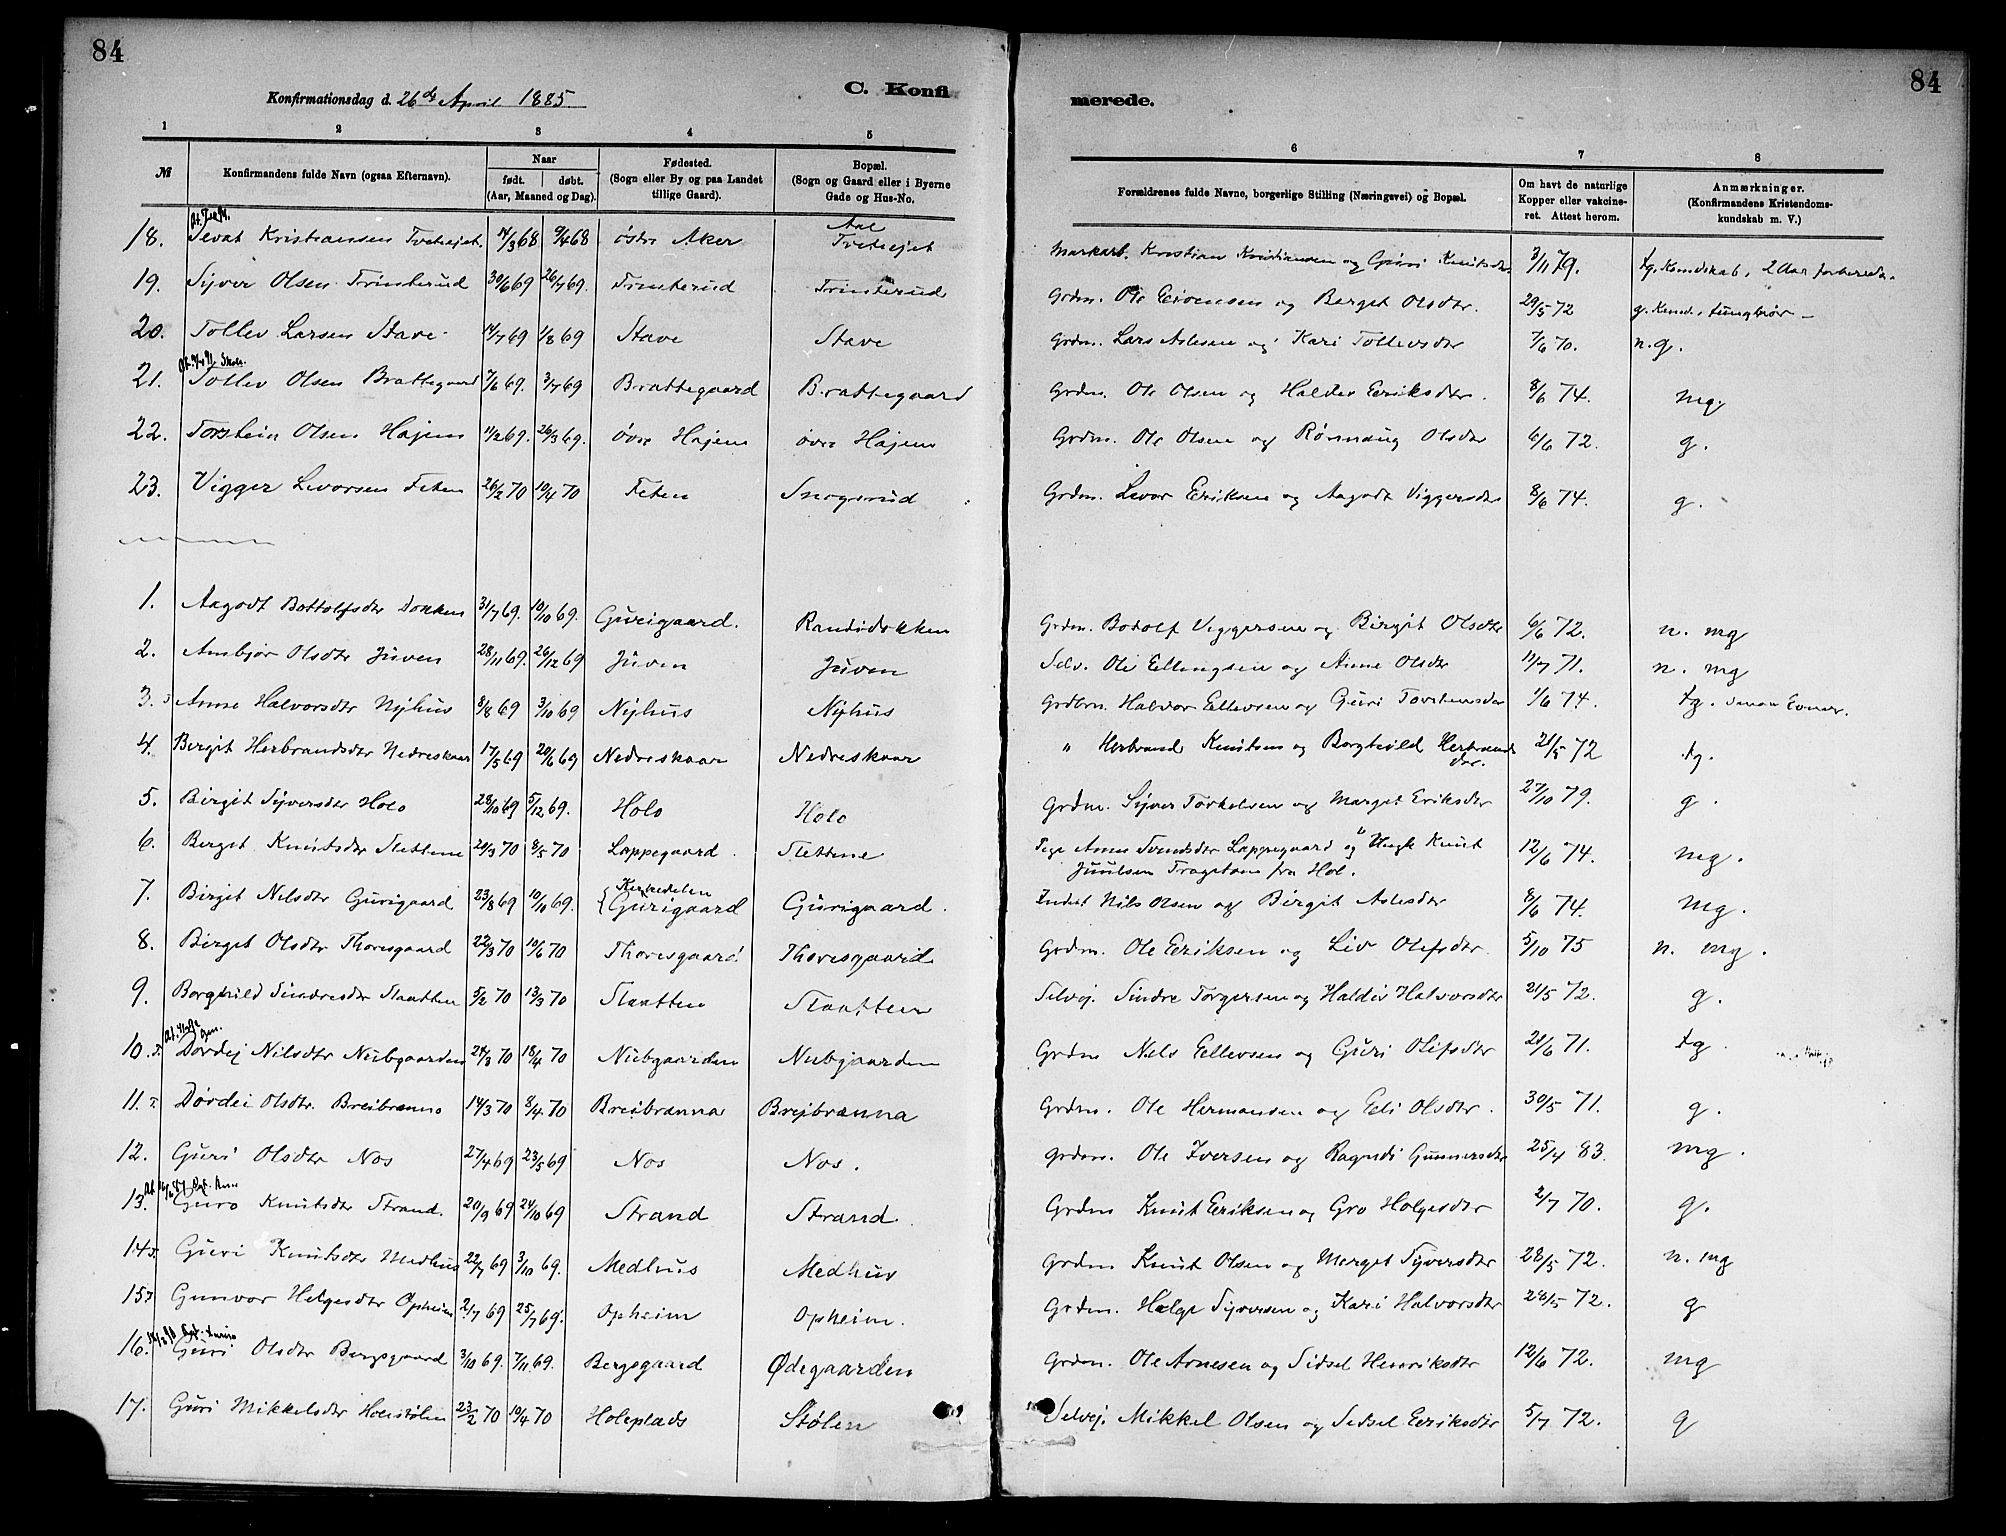 84
84
Konfirmationsdag d. 26de April 1885.
C. Konfi
merede.
1 2 3 4 5 6 7 8
№ Konfirmandens fulde Navn (ogsaa Efternavn). Naar født. døbt. (Aar, Maaned og Dag). Fødested. (Sogn eller By og paa Landet tillige Gaard). Bopæl. (Sogn og Gaard eller i Byerne Gade og Hus-No. Forældrenes fulde Navne, borgerlige Stilling (Næringsvei) og Bopæl. Om havt de naturlige Kopper eller vakcineret. Attest herom. Anmærkninger. (Konfirmandens Kristendomskundskab m. V.)
18. Sevat Kristiansen Tvetejet. 14/3 68 9/4 68 østre Aker Aal Tvetejet Markarb. Kristian Kristiansen og Guri Knutsdr 3/11 79. tg. Kundskab, 2 Aar forberedt.
19. Syver Olsen Trinterud 30/6 69 26/7 69. Trinterud Trinterud Grdm. Ole Eivensen og Berget Olsdtr. 29/5 72 g. Kund., tunghør
20. Tollev Larsen Stave 14/7 69 1/8 69 Stave Stave Grdm. Lars Aslesen og Kari Tollevsdtr 7/6 70. n. g.
21. Tollev Olsen Brattegaard 7/6 69. 3/7 69 Brattegaard Brattegaard Grdm. Ole Olsen og Haldis Eriksdtr. 8/6 74. mg.
22. Torstein Olsen Hajem 11/2 69. 26/3 69. øvre Hajem øvre Hajem Grdm. Ole Olsen og Rønnaug Olsdtr 6/6 72. g.
23. Vigger Levorsen Feten 26/2 70 10/4 70 Feten Snogerud Grdm. Levor Eriksen og Aagodt Viggersdtr 8/6 74. g.
1. Aagodt Bottolfsdtr Dokken 31/7 69. 10/10 69. Gurigaard. Randidokken Grdm. Bodolf Viggersen og Birgit Olsdtr 6/6 72. n. mg
2. Ambjør Olsdtr Juven 28/11 69. 26/12 69 Juven Juven Selv. Ole Ellingsen og Anne Olsdtr 11/7 71. n. mg
3. Anne Halvorsdtr Nyhus 8/8 69 3/10 69 Nyhus Nyhus Grdbrn. Halvor Ellevsen og Guri Torstensdtr 1/6 74. tg. smaa Evner.
4. Bergit Herbrandsdtr Nedreskaar 17/5 69 20/6 69 Nedreskaar Nedreskaar " Herbrand Knutsen og Borghild Herbrandsdtr. 21/5 72 tg.
5. Birgit Syversdtr Holo 28/10 69 5/12 69. Holo Holo Grdm. Syver Torkelsen og Marget Eriksdtr 27/10 79. g.
6. Berget Knutsdtr Slettene 20/3 70 8/5 70 Lappegaard Slettene Pige Anne Svendsdtr Lappegaard og Ungk Knut 12/6 74. mg.
Juulsen Tragetøen fra Hol.
7. Birgit Nilsdtr Gurigaard 23/8 69 10/10 69. Kirkedelen Gurigaard Gurigaard. Inderst Nils Olsen og Birgit Aslesdtr 8/6 74. mg.
8. Birget Olsdtr Thoresgaard 22/3 70 10/6 70 Thoresgaard Thoresgaard Grdm. Ole Eriksen og Liv Olefsdtr. 5/10 75 n. mg.
9. Borghild Sindresdtr Slaatten 5/2 70 13/3 70 Slaatten Slaatten Selvej. Sindre Torgersen og Haldis Halvorsdtr 21/5 72. g.
10. Dordej Nilsdtr Nubgaarden 24/3 70 18/4 70 Nubgaarden Nubgaarden Grdm Nils Ellevsen og Guri Olefsdtr 20/6 71. tg
11. Dordei Olsdtr. Breibrænna 14/3 70 8/4 70 Breibrænna Brejbrænna Grdm. Ole Hermansen og Eli Olsdtr. 30/5 71. g.
12. Guri Olsdtr Nos 27/4 69 23/5 69 Nos Nos. Grdm. Ole Iversen og Ragndi Gunnersdtr 25/4 83. mg.
13. Guro Knutsdtr Strand. 20/9 69 24/10 69 Strand Strand. Grdm Knut Eriksen og Gro Holgesdtr 2/7 70. g.
14. Guri Knutsdtr Medhus 22/7 69 3/10 69. Medhus Medhus Grdm Knut Olsen og Merget Syversdtr 28/5 72. n. mg
15. Gunvor Helgesdtr Opheim 2/7 69 25/7 69. Opheim Opheim. Grdm. Helge Syversen og Kari Halvorsdtr 28/5 72. g
16. Guri Olsdtr Bergsgaard 3/10 69. 7/11 69. Bergsgaard Ødegaarden Grdm. Ole Arnesen og Sidsel Henriksdtr 12/6 72. mg
17. Guri Mikkelsdtr Holestølen 23/2 70 10/4 70 Holeplads Stølen Selvej. Mikkel Olsen og Sidsel Eriksdtr 5/7 72. g